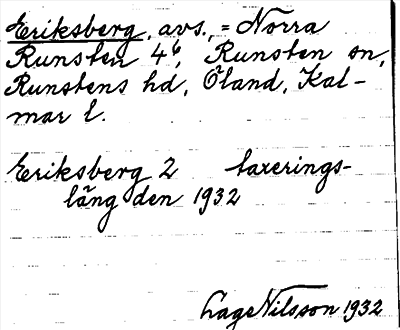 Eriksberg, avs., = Norra
Runsten 4⁶, Runsten sn,
Runstens hd, Öland, Kal-
mar l.
Eriksberg 2 taxerings-
längden 1932
Lage Nilsson 1932